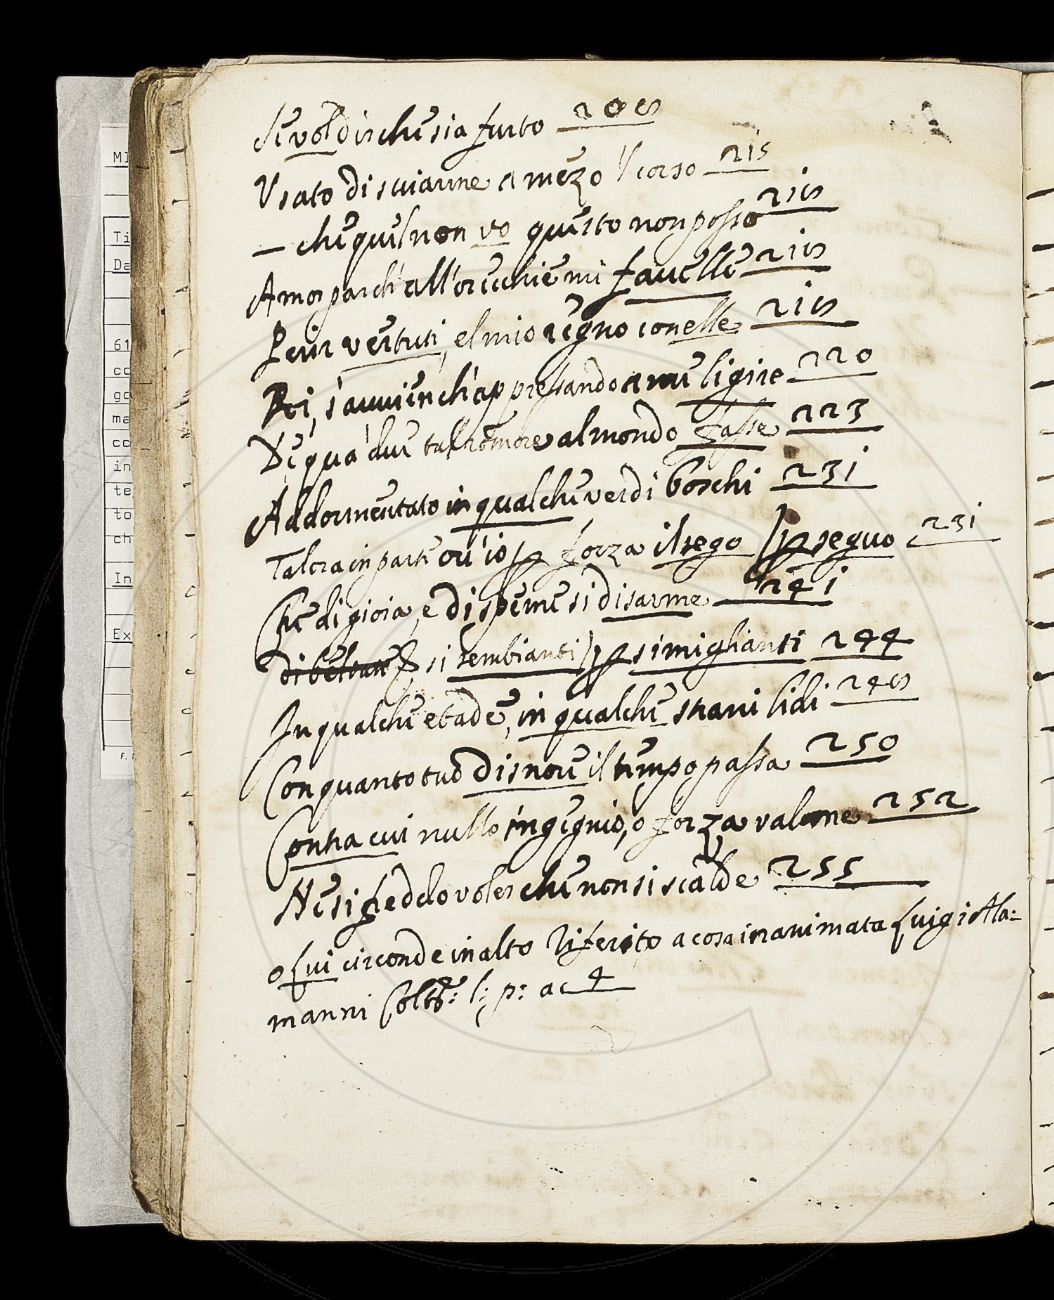 Se vol dir che sia furto 206
Usato di sviarme a mezo 'l corso 215
— che quel non vo questo non posso 216
Amor par ch'all'orecchie mi favelle 216
Penr vertuti, el mio regno con elle 216
Poi, s'avvien ch'appressando a me li gire 220
Di qua due tal romore al mondo fasse 223
Addormentato in qualche verdi boschi 231
Talora in parte ov'io forza il sego seguo 231
Che di gioia, e di speme si disarme 241
di si sembianti simiglianti 244
In qualche etade, in qualche strani lidi 246
Con quanto tuo disnou il tempo passa 250
Contra cui nullo ingegnio, o forza valme 252
Ne si fredde voler che non si scalde 255
o lui circonde in alto riferito a cosa inanimata Luigi Ala=
manni Colt: l: p: ac 4
MI
Ti
Da
61
co
ma
co
in
te
to
ch
In
Ex